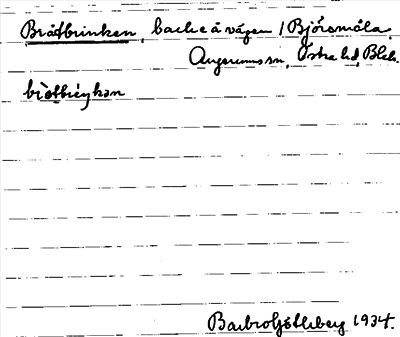 Bråtbrinken, backe å vägen i Björsmåla,
Augerums sn, Östra hd, Blek.
bròtbriŋkən
Barbro Götlberg 1934.